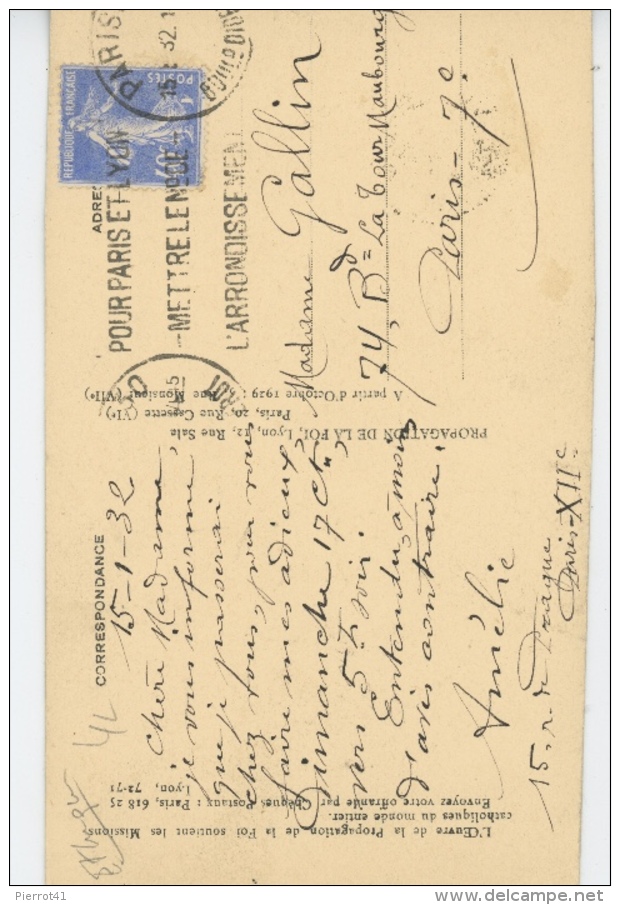 CORRESPONDANCE
15-1-32
Chère Madame,
je vous informe
que je passerai
chez vous, pour vous
faire mes adieux,
Dimanche 17 Ct,
vers 5 h soir.
Entendu, à moins
d'avis contraire.
Amélie
15, r. de Prague
Paris-XIIe
ADRES
Madame Gallin
74, Bd La Tour Maubourg
Paris-7e
PARIS
15 1 32
POUR PARIS ET LYON
METTRE LE N° DE
L'ARRONDISSEMENT
REPUBLIQUE FRANÇAISE
POSTES
PROPAGATION DE LA FOI, Lyon, 12, Rue Sala
Paris, 20, Rue Cassette (VIe)
A partir d'Octobre 1929 : Rue Monsieur (VIIe)
L'Œuvre de la Propagation de la Foi soutient les Missions
catholiques du monde entier.
Envoyez votre offrande par Chèques Postaux : Paris, 618 25
Lyon, 72-71
Pierrot41
www.delcampe.net